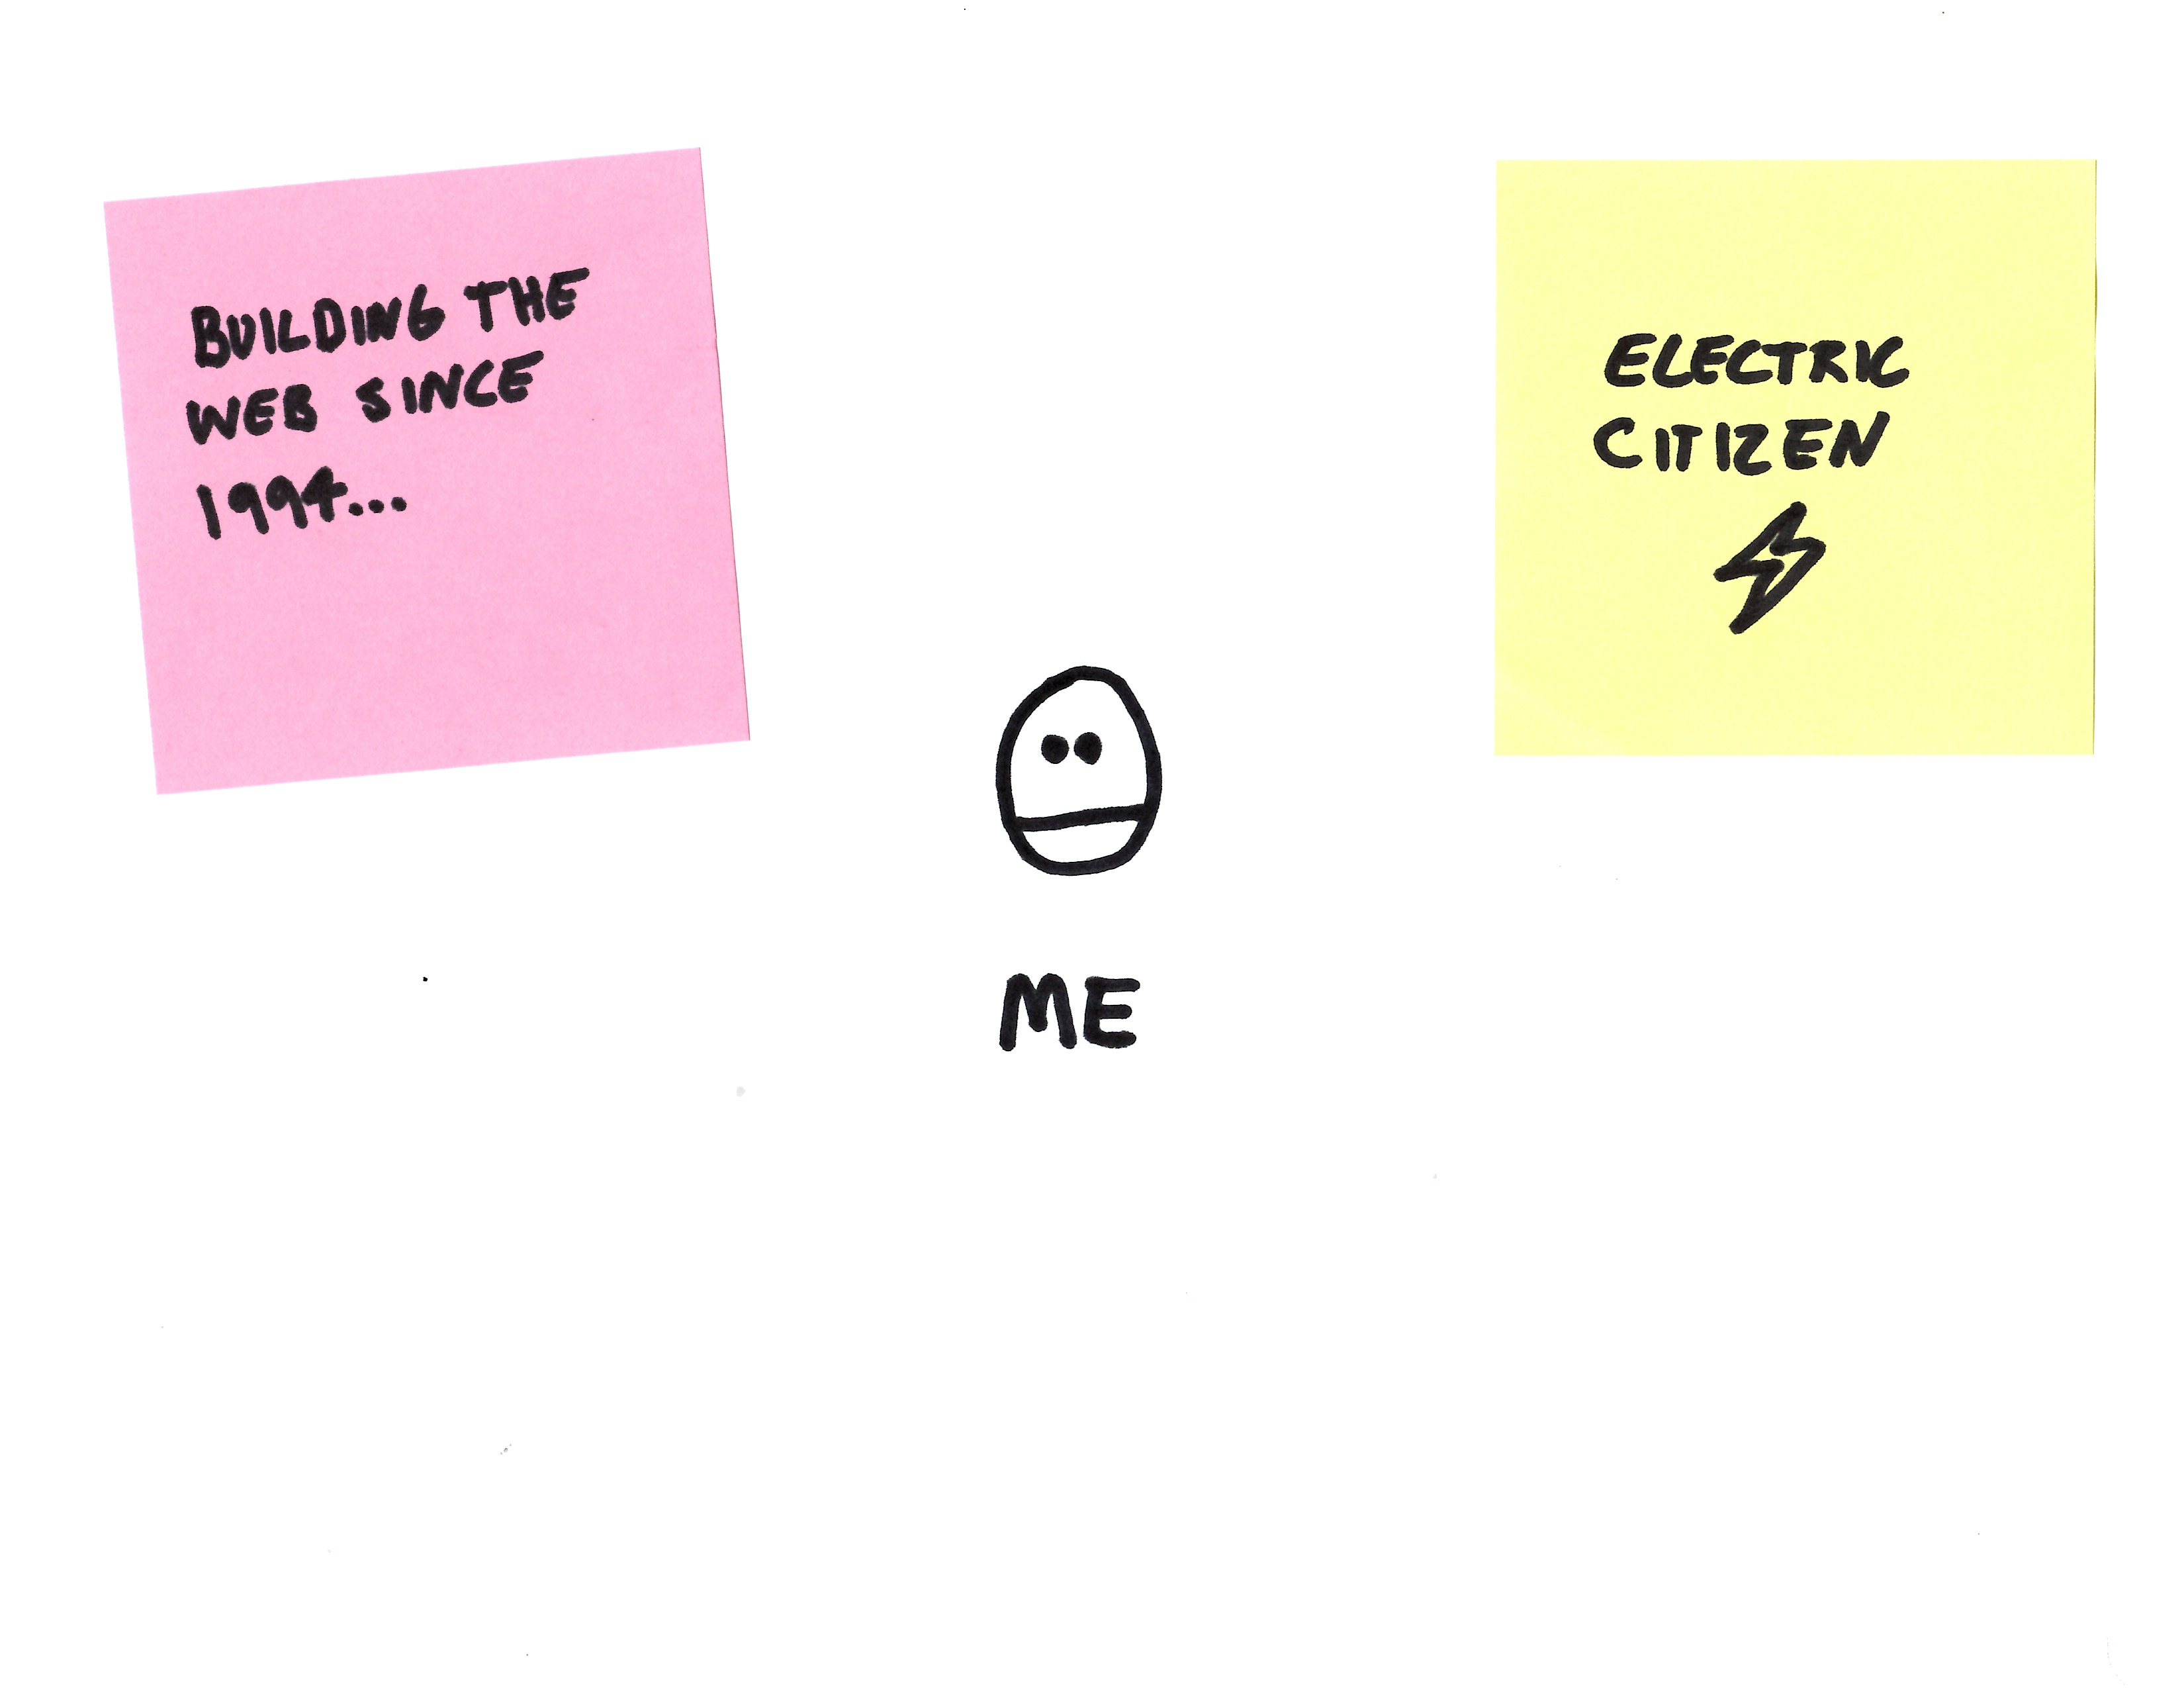 BUILDING THE
WEB SINCE
1994...
ELECTRIC
CITIZEN
ME